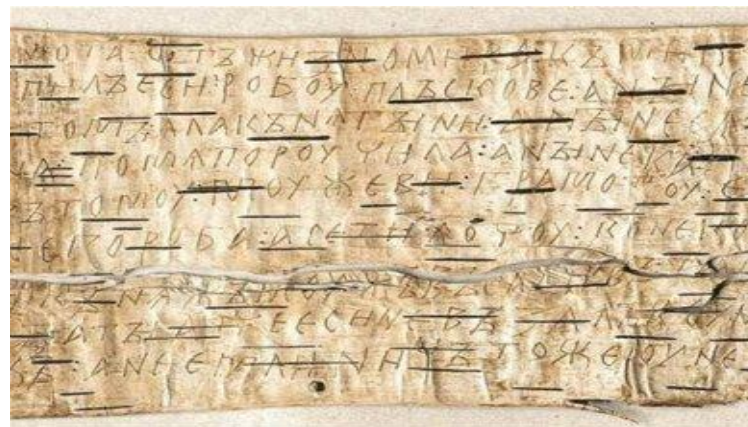 МОТА:ѠТЪ ЖИЗНОМИРА:КЪ МИК
ПИЛЪ ЕСИ:РОБОУ:ПЛЪСКОВЕ:А НЫНЕ
ТОМЪ:ѦЛА КЪНѦГЫНИ:А НЫНЕ СѦ
НА:ПО МѦ ПОРОУЧИЛА:А НЫНЕ КА
Ъ ТОМОУ:МОУЖЕВИ:ГРАМОТОУ:Е
ЕГО РОБА:А СЕ ТИ ХОЧОУ:КОНЕ
КЪНѦЖЪ МОУЖЪ ВЪСА
АТЪ ЕСИ НЕ ВЪЗАЛЪ КОУН
ХЪ:А НЕ ЕМЛИ:НИЧЪТО ЖЕ ОУ НЕ